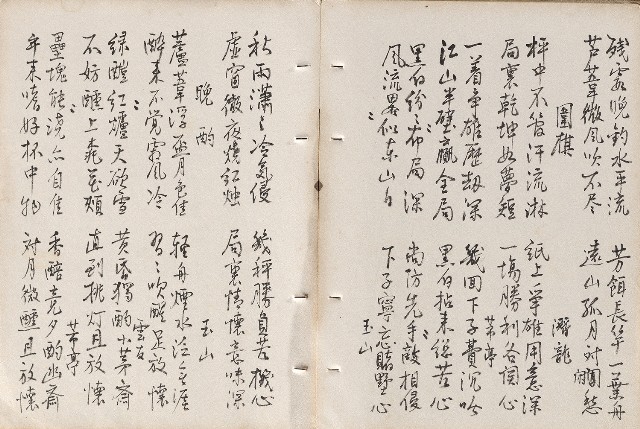 殘霞晚釣水平流　芳餌長竿一葉舟
芦葦微風吹不尽　遠山孤月对閒愁
圍棋　潛龍
枰中不管汗流淋　紙上爭雄用意深
局裏乾坤如夢短　一場勝利各関心
亭
一着爭雄歷劫深　幾回下子費沉吟
江山半壁贏全局　黑白拈来總苦心
黑白紛々布局深　尚防先手敵相侵
風流畧似東山日　下子寧忘賭野心
玉山
秋雨瀟々冷氣侵　幾秤勝負苦機心
虛窗徹夜燒紅燭　局裏情懷意味深
晚酌　玉山
蘆葦浮盃月色佳　輕舟煙水泛無涯
醉来不觉霜風冷　習々吹醒足放懷
雲友
綠醴紅爐天欲雪　黃昏獨酌小茅齋
不妨醺上桃花頰　直到挑灯且放懷
亭
壘塊能澆亦自佳　香醅竟夕酌幽齋
年来嗜好杯中物　対月微醺且放懷